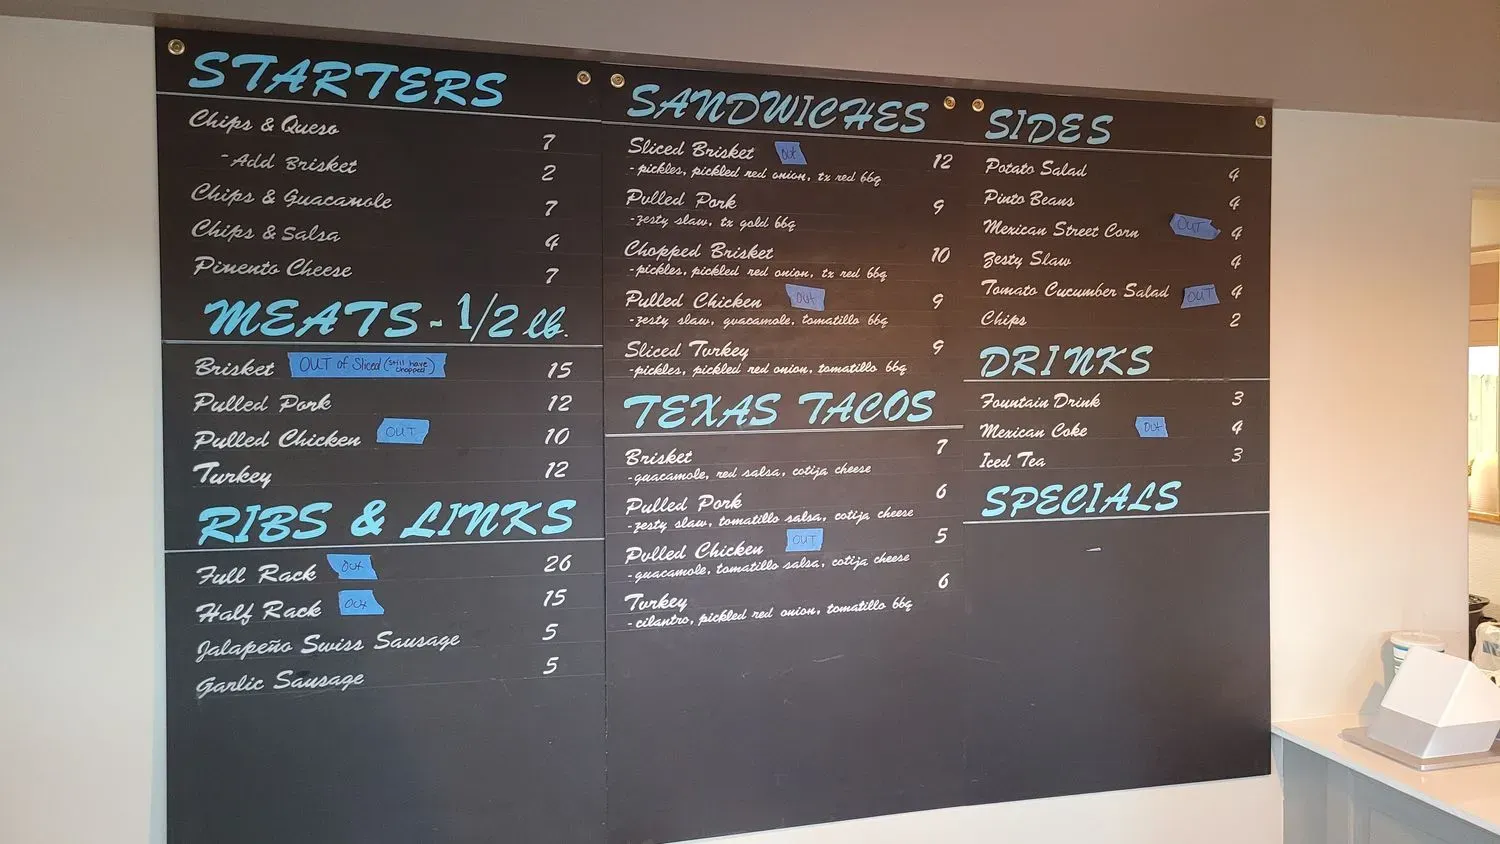 STARTERS
Chips & Queso 7
-Add Brisket 2
Chips & Guacamole 7
Chips & Salsa 4
Pimento Cheese 7
MEATS - 1/2 lb.
Brisket OUT of Sliced (still have chopped) 15
Pulled Pork 12
Pulled Chicken OUT 10
Turkey 12
RIBS & LINKS
Full Rack Out 26
Half Rack Out 15
Jalapeño Swiss Sausage 5
Garlic Sausage 5
SANDWICHES
Sliced Brisket Out 12
- pickles, pickled red onion, tx red bbq
Pulled Pork 9
-zesty slaw, tx gold bbq
Chopped Brisket 10
-pickles, pickled red onion, tx red bbq
Pulled Chicken Out 9
-zesty slaw, guacamole, tomatillo bbq
Sliced Turkey 9
-pickles, pickled red onion, tomatillo bbq
TEXAS TACOS
Brisket 7
-guacamole, red salsa, cotija cheese
Pulled Pork 6
-zesty slaw, tomatillo salsa, cotija cheese
Pulled Chicken OUT 5
-guacamole, tomatillo salsa, cotija cheese
Turkey 6
-cilantro, pickled red onion, tomatillo bbq
SIDES
Potato Salad 4
Pinto Beans 4
Mexican Street Corn OUT 4
Zesty Slaw 4
Tomato Cucumber Salad OUT 4
Chips 2
DRINKS
Fountain Drink 3
Mexican Coke Out 4
Iced Tea 3
SPECIALS